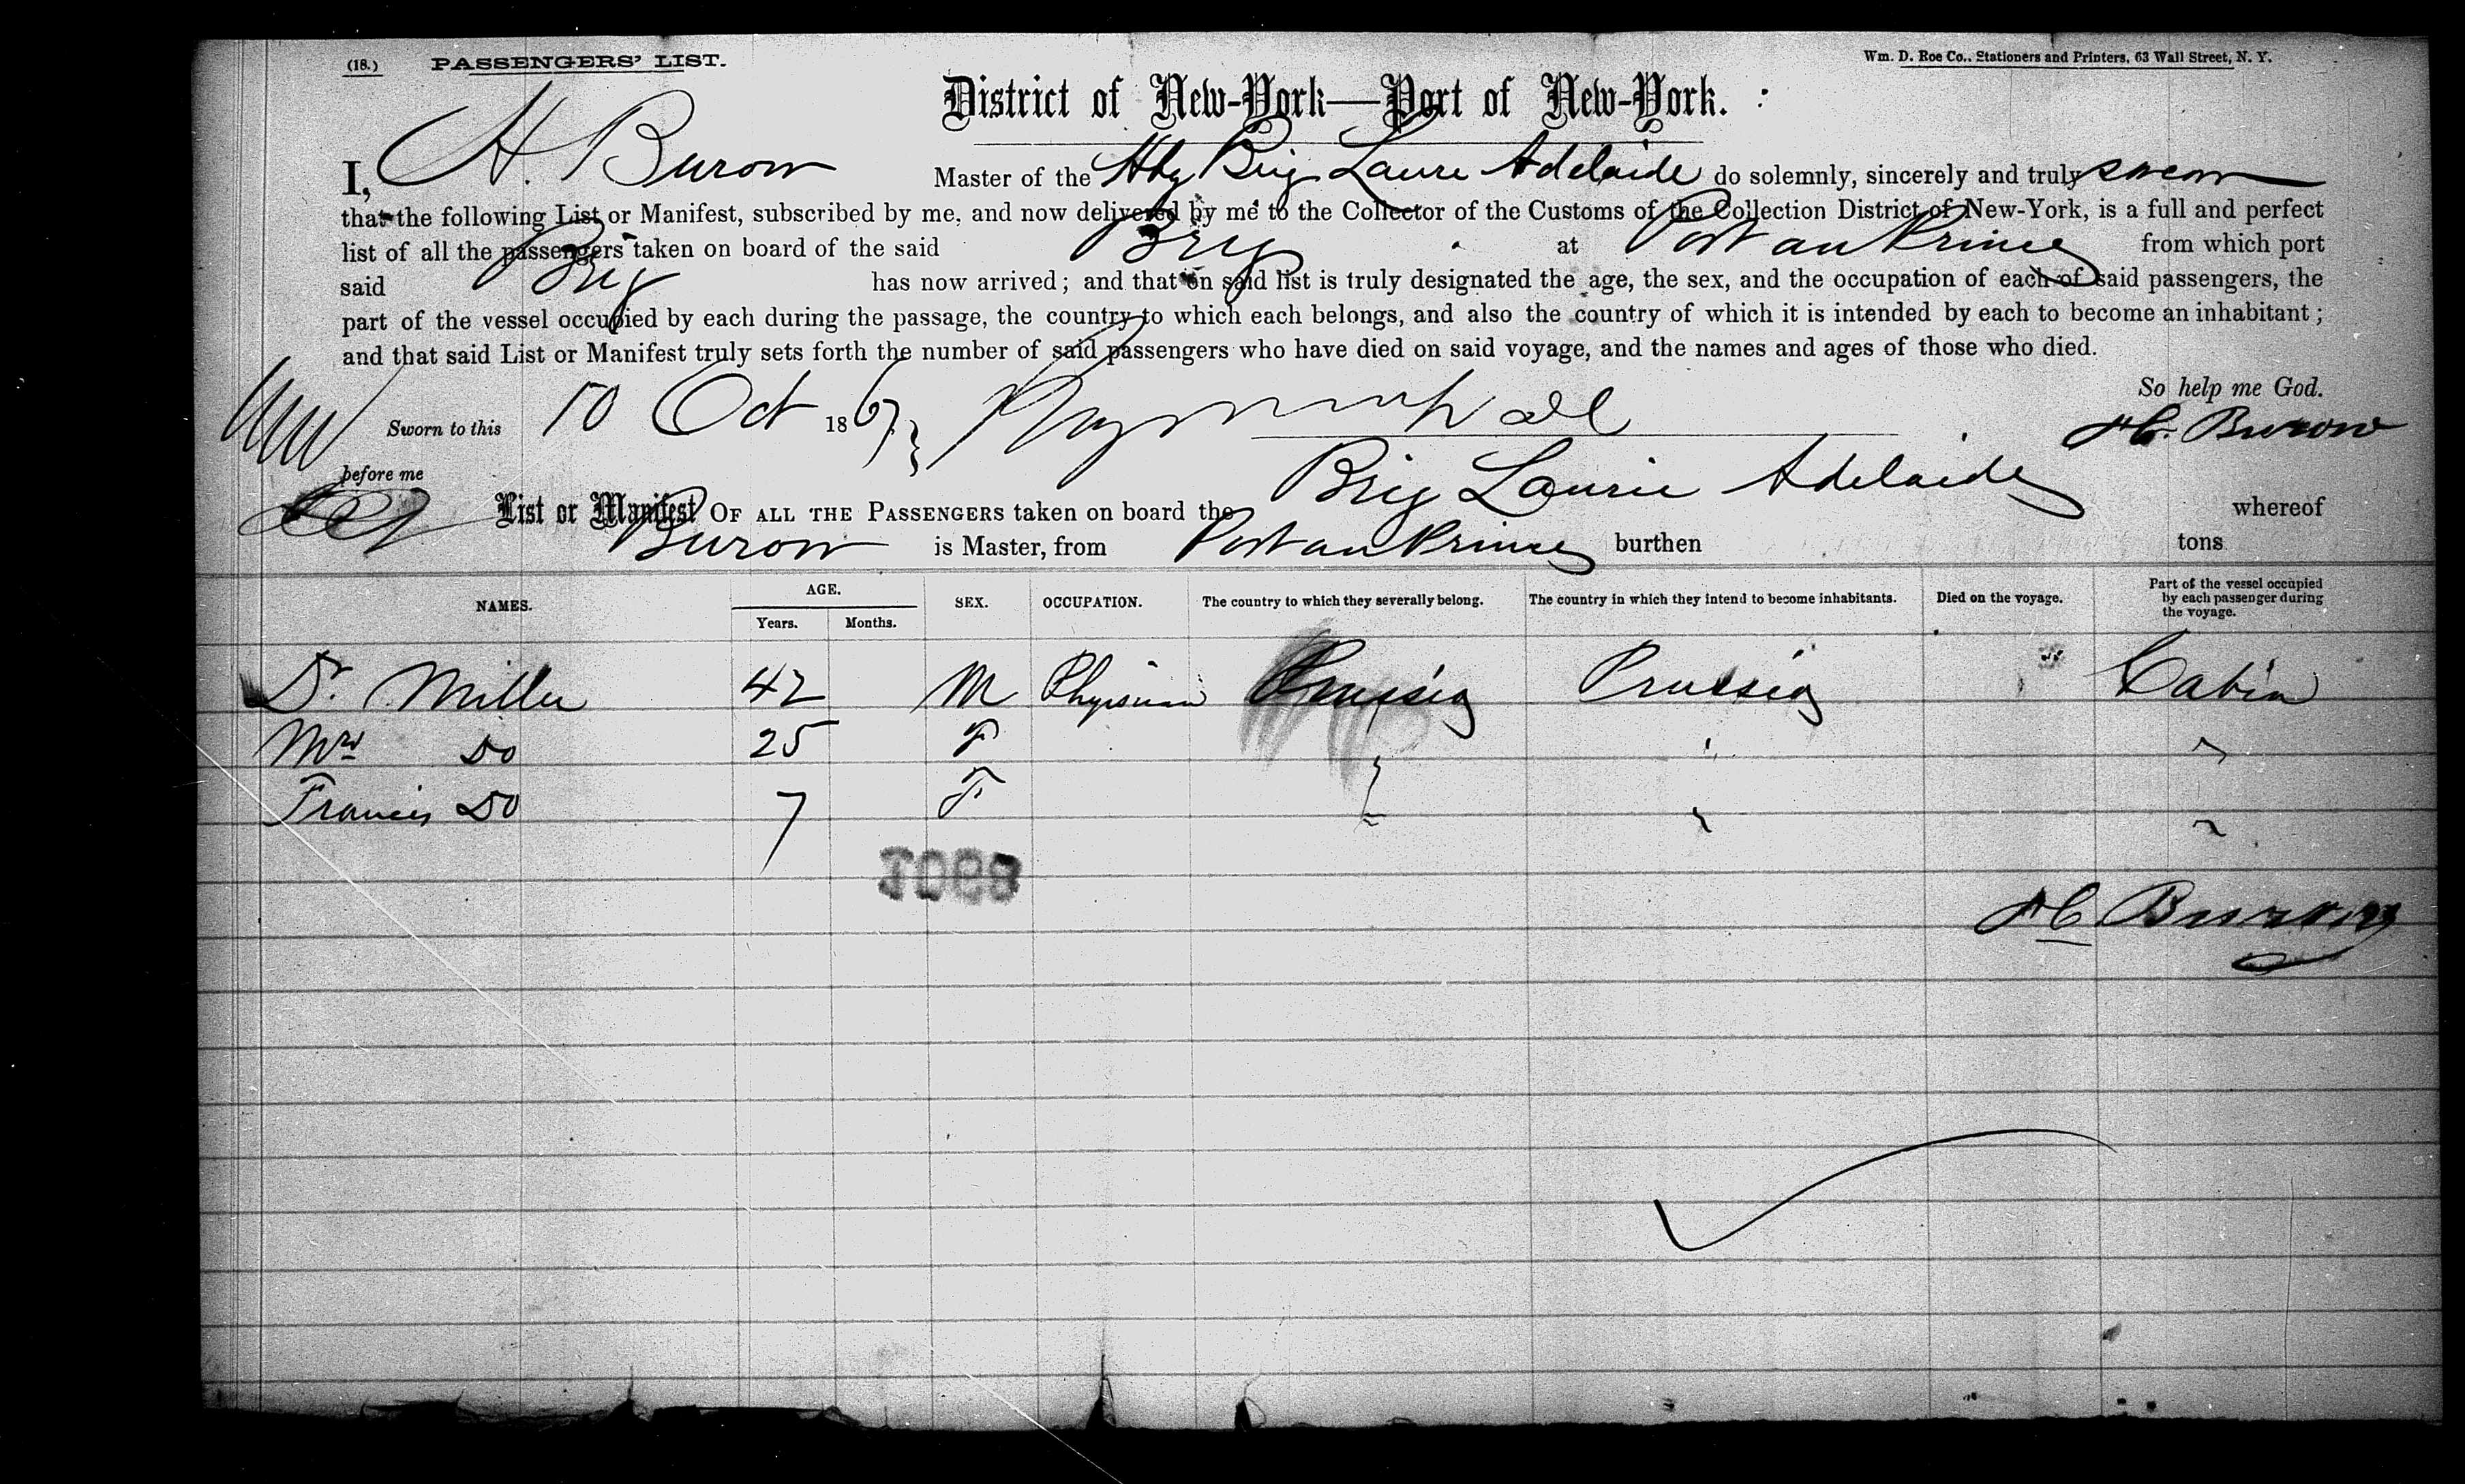 (18.) PASSENGERS' LIST. Wm. D. Roe Co., Stationers and Printers, 63 Wall Street, N. Y.
District of New-York—Port of New-York.
I, H. Burow Master of the Hbg Brig Laure Adelaide do solemnly, sincerely and truly swear
that the following List or Manifest, subscribed by me, and now delivered by me to the Collector of the Customs of the Collection District of New-York, is a full and perfect
list of all the passengers taken on board of the said Brig at Port au Prince from which port
said Brig has now arrived; and that on said list is truly designated the age, the sex, and the occupation of each of said passengers, the
part of the vessel occupied by each during the passage, the country to which each belongs, and also the country of which it is intended by each to become an inhabitant;
and that said List or Manifest truly sets forth the number of said passengers who have died on said voyage, and the names and ages of those who died.
So help me God.
Sworn to this 10 Oct 1867 H C. Burow
before me
List or Manifest OF ALL THE PASSENGERS taken on board the Brig Laurie Adelaide whereof
Burow is Master, from Port au Prince burthen tons
NAMES. AGE. Years. Months. SEX. OCCUPATION. The country to which they severally belong. The country in which they intend to become inhabitants. Died on the voyage. Part of the vessel occupied by each passenger during the voyage.
Dr. Miller 42 M Physician Prussia Prussia Cabin
Mrs Do 25 F " " "
Francis Do 7 F " " "
1089
H C Burow